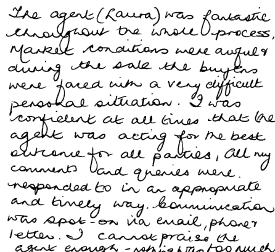 The agent (Laura) was fantastic
throughout the whole process.
Market conditions were awful &
during the sale the buyers
were faced with a very difficult
personal situation. I was
confident at all times that the
agent was acting for the best
outcome for all parties, All my
comments and queries were
responded to in an appropriate
and timely way. Communication
was spot-on via email, phone &
letter. I cannot praise the
agent enough - nothing too much